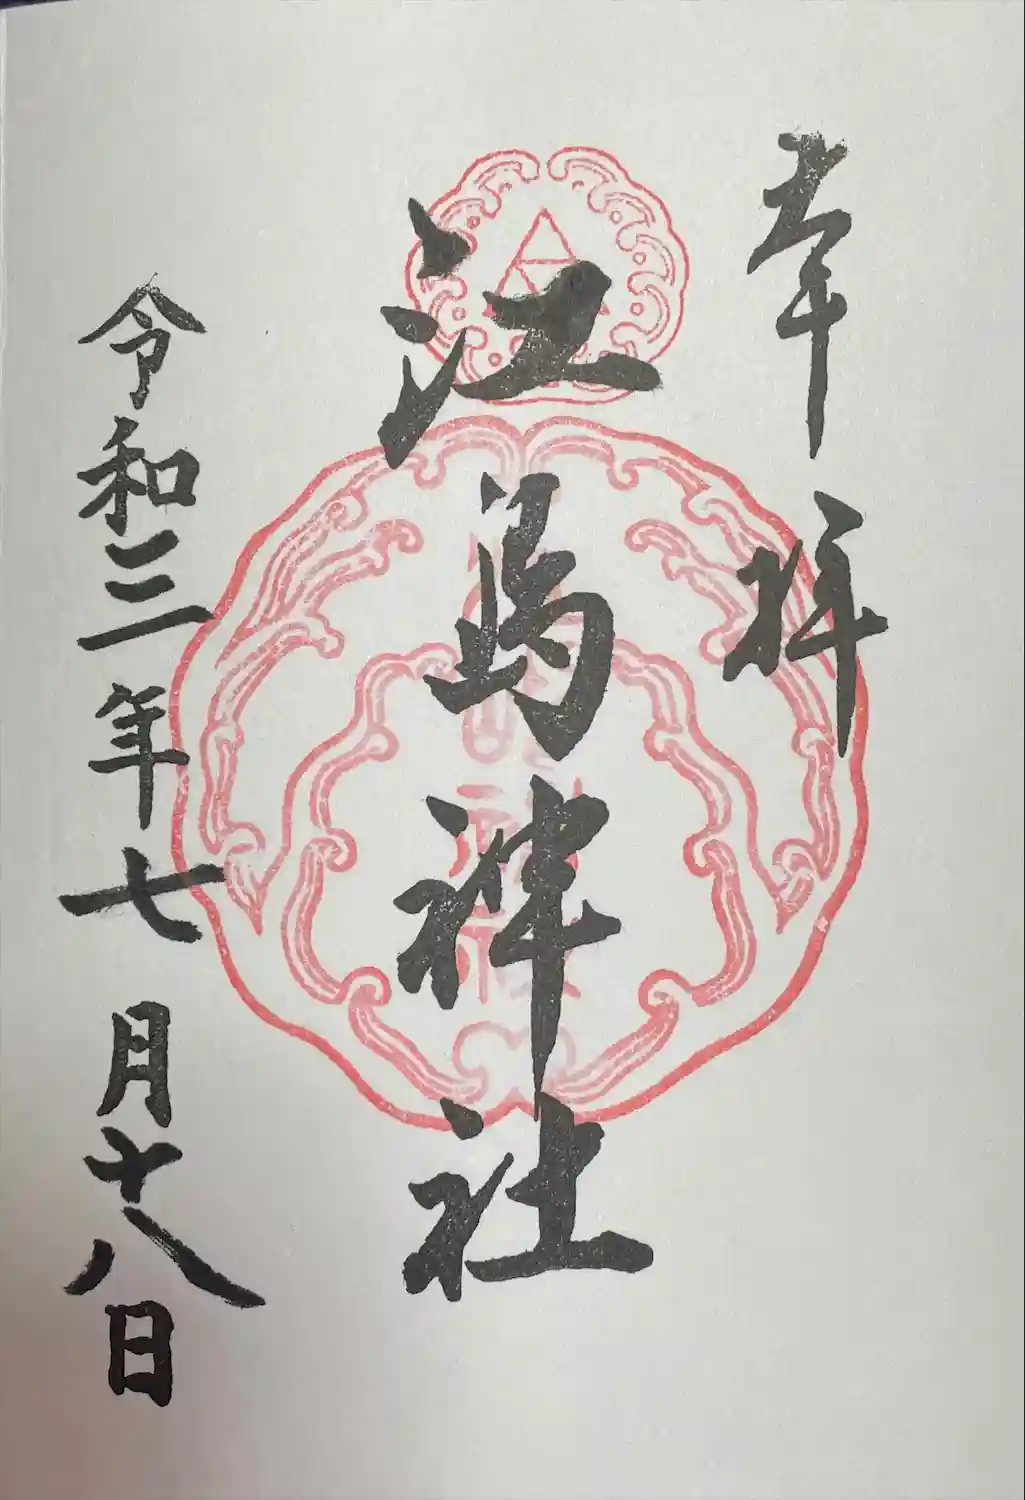 奉拝
江島神社
令和三年七月十八日